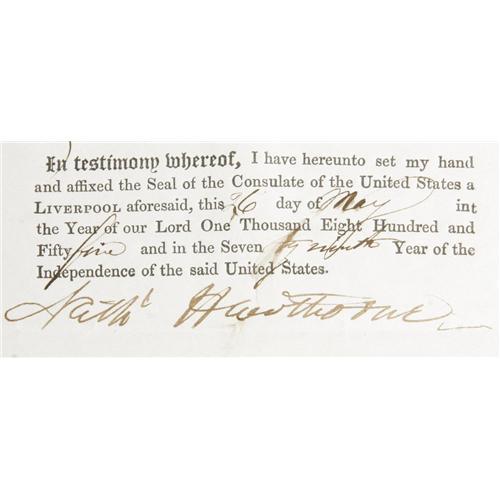 In testimony whereof, I have hereunto set my hand
and affixed the Seal of the Consulate of the United States a
LIVERPOOL aforesaid, this 26 day of May int
the Year of our Lord One Thousand Eight Hundred and
Fifty five and in the Seven ty ninth Year of the
Independence of the said United States.
Nathl Hawthorne